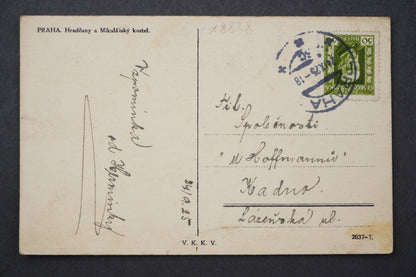 PRAHA. Hradčany a Mikulášský kostel.
18828
Vzpomínka
od Herminky
24/9.25
PRAHA
50
Fil.
Společnosti
"u Hoffmannů"
Kadno
Lazeňská ul.
V. K. K. V.
2037-7.